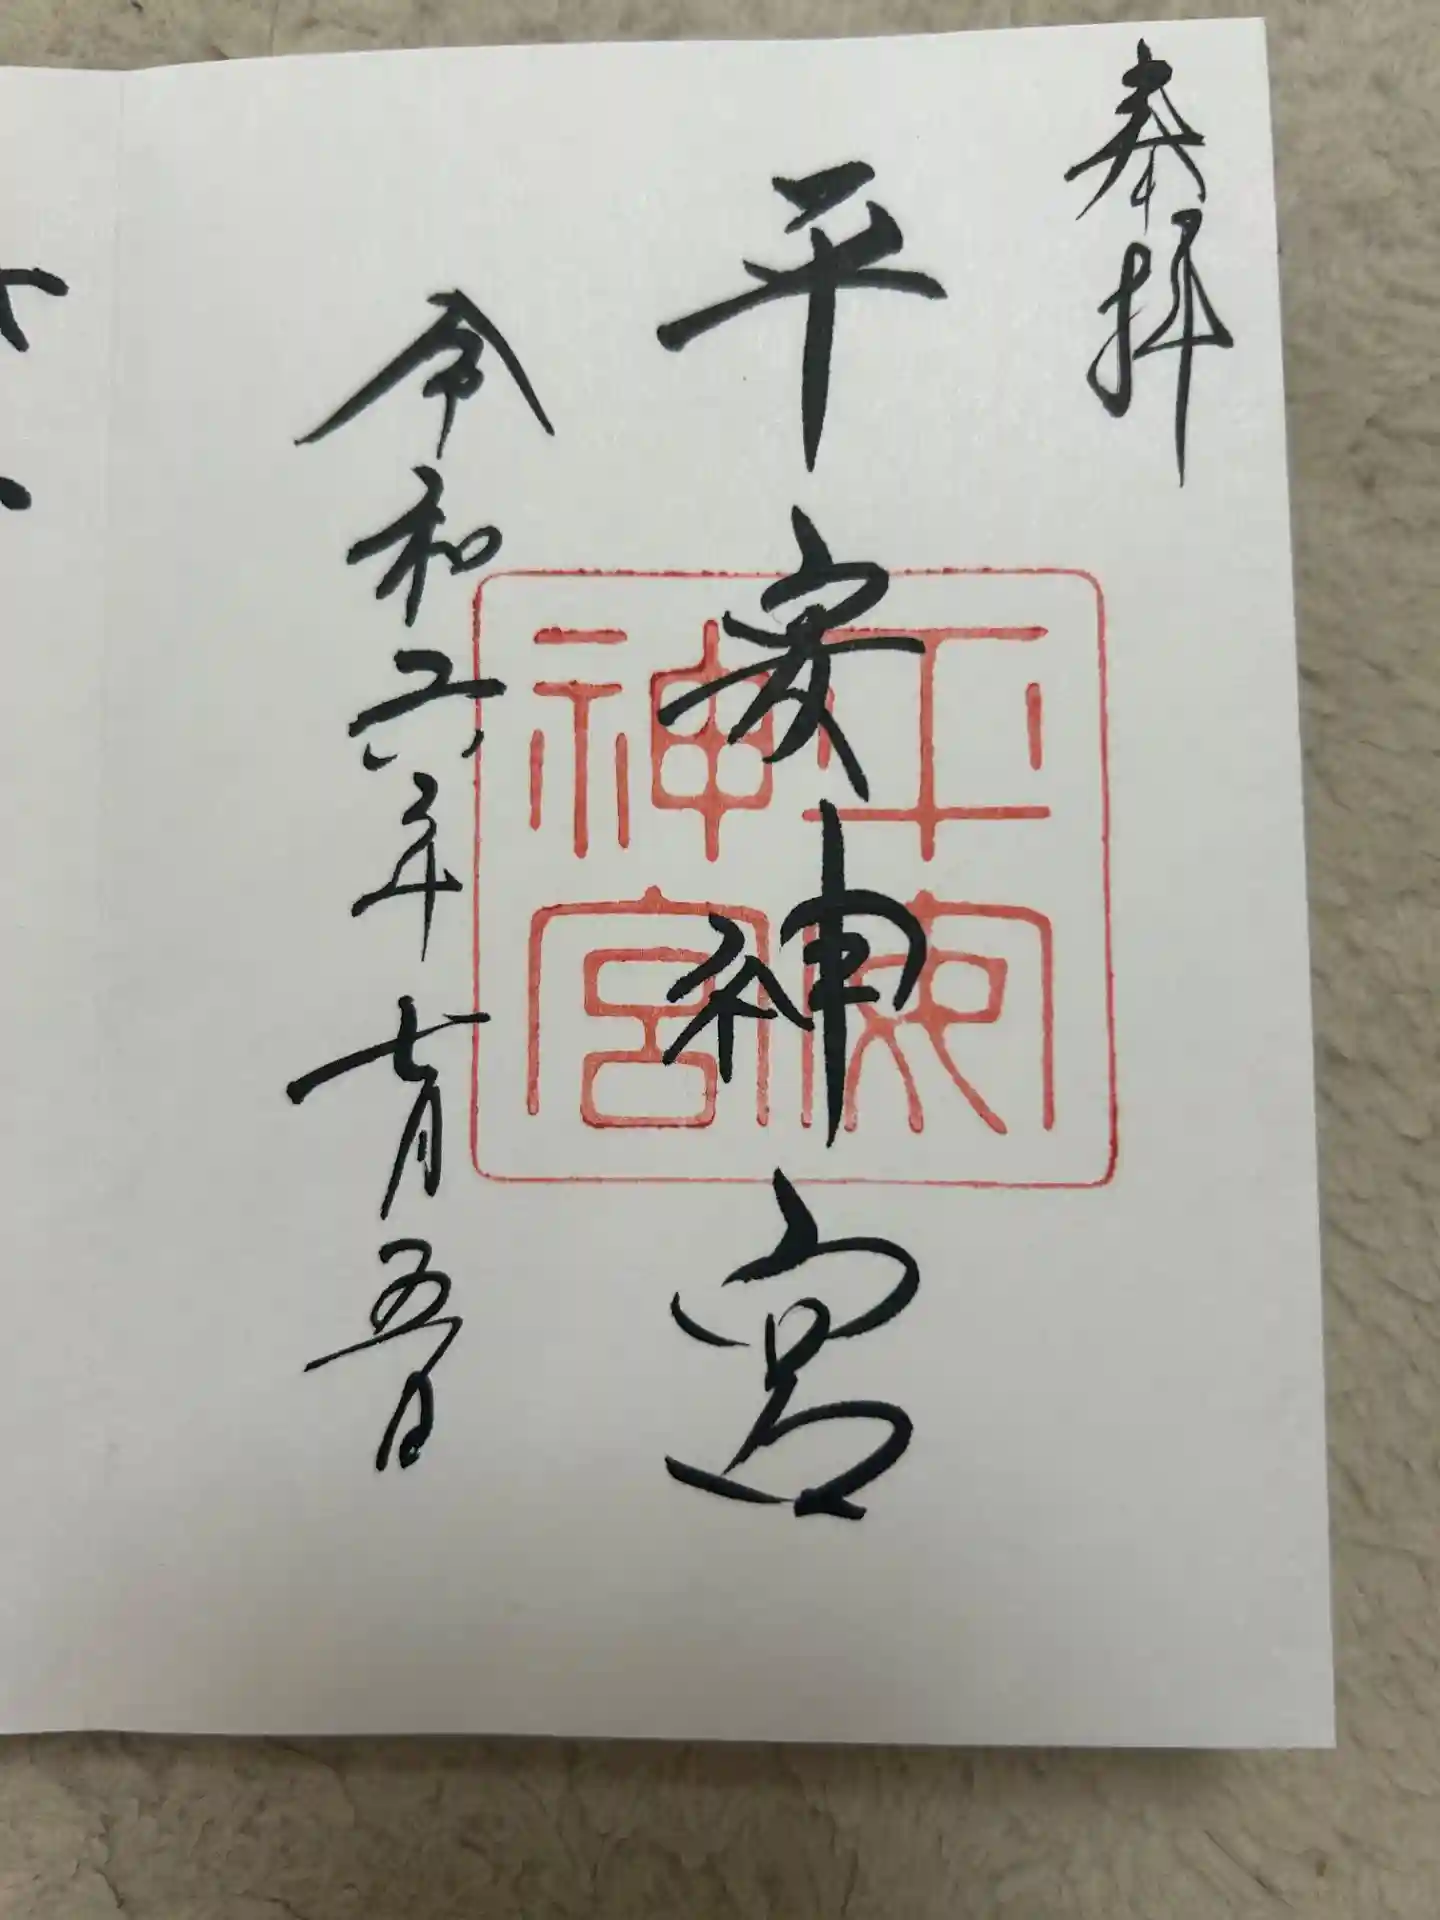 奉拝
平安神宮
平安神宮
令和六年七月五日